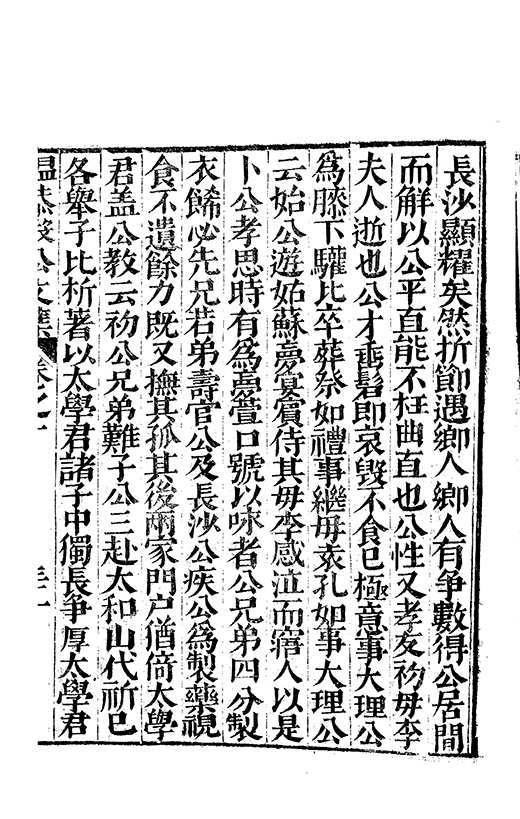 長沙顯耀矣然折節遇鄉人鄉人有爭數得公居間
而解以公平直能不枉曲直也公性又孝友初毋李
夫人逝也公才垂髫即哀毀不食巳極意事大理公
為膝下驩比卒葬祭如禮事繼毋袁孔如事大理公
云始公遊姑蘇夢宴賓侍其毋李感泣而寤人以是
卜公孝思時有為夢萱口號以咏者公兄弟四分製
衣餙必先兄若弟壽官公及長沙公疾公為製藥視
食不遺餘力既又撫其孤其後兩家門戶猶倚太學
君盖公教云初公兄弟難子公三赴太和山代祈巳
各舉子比析著以太學君諸子中獨長爭厚太學君
溫恭毅公文集 卷之十